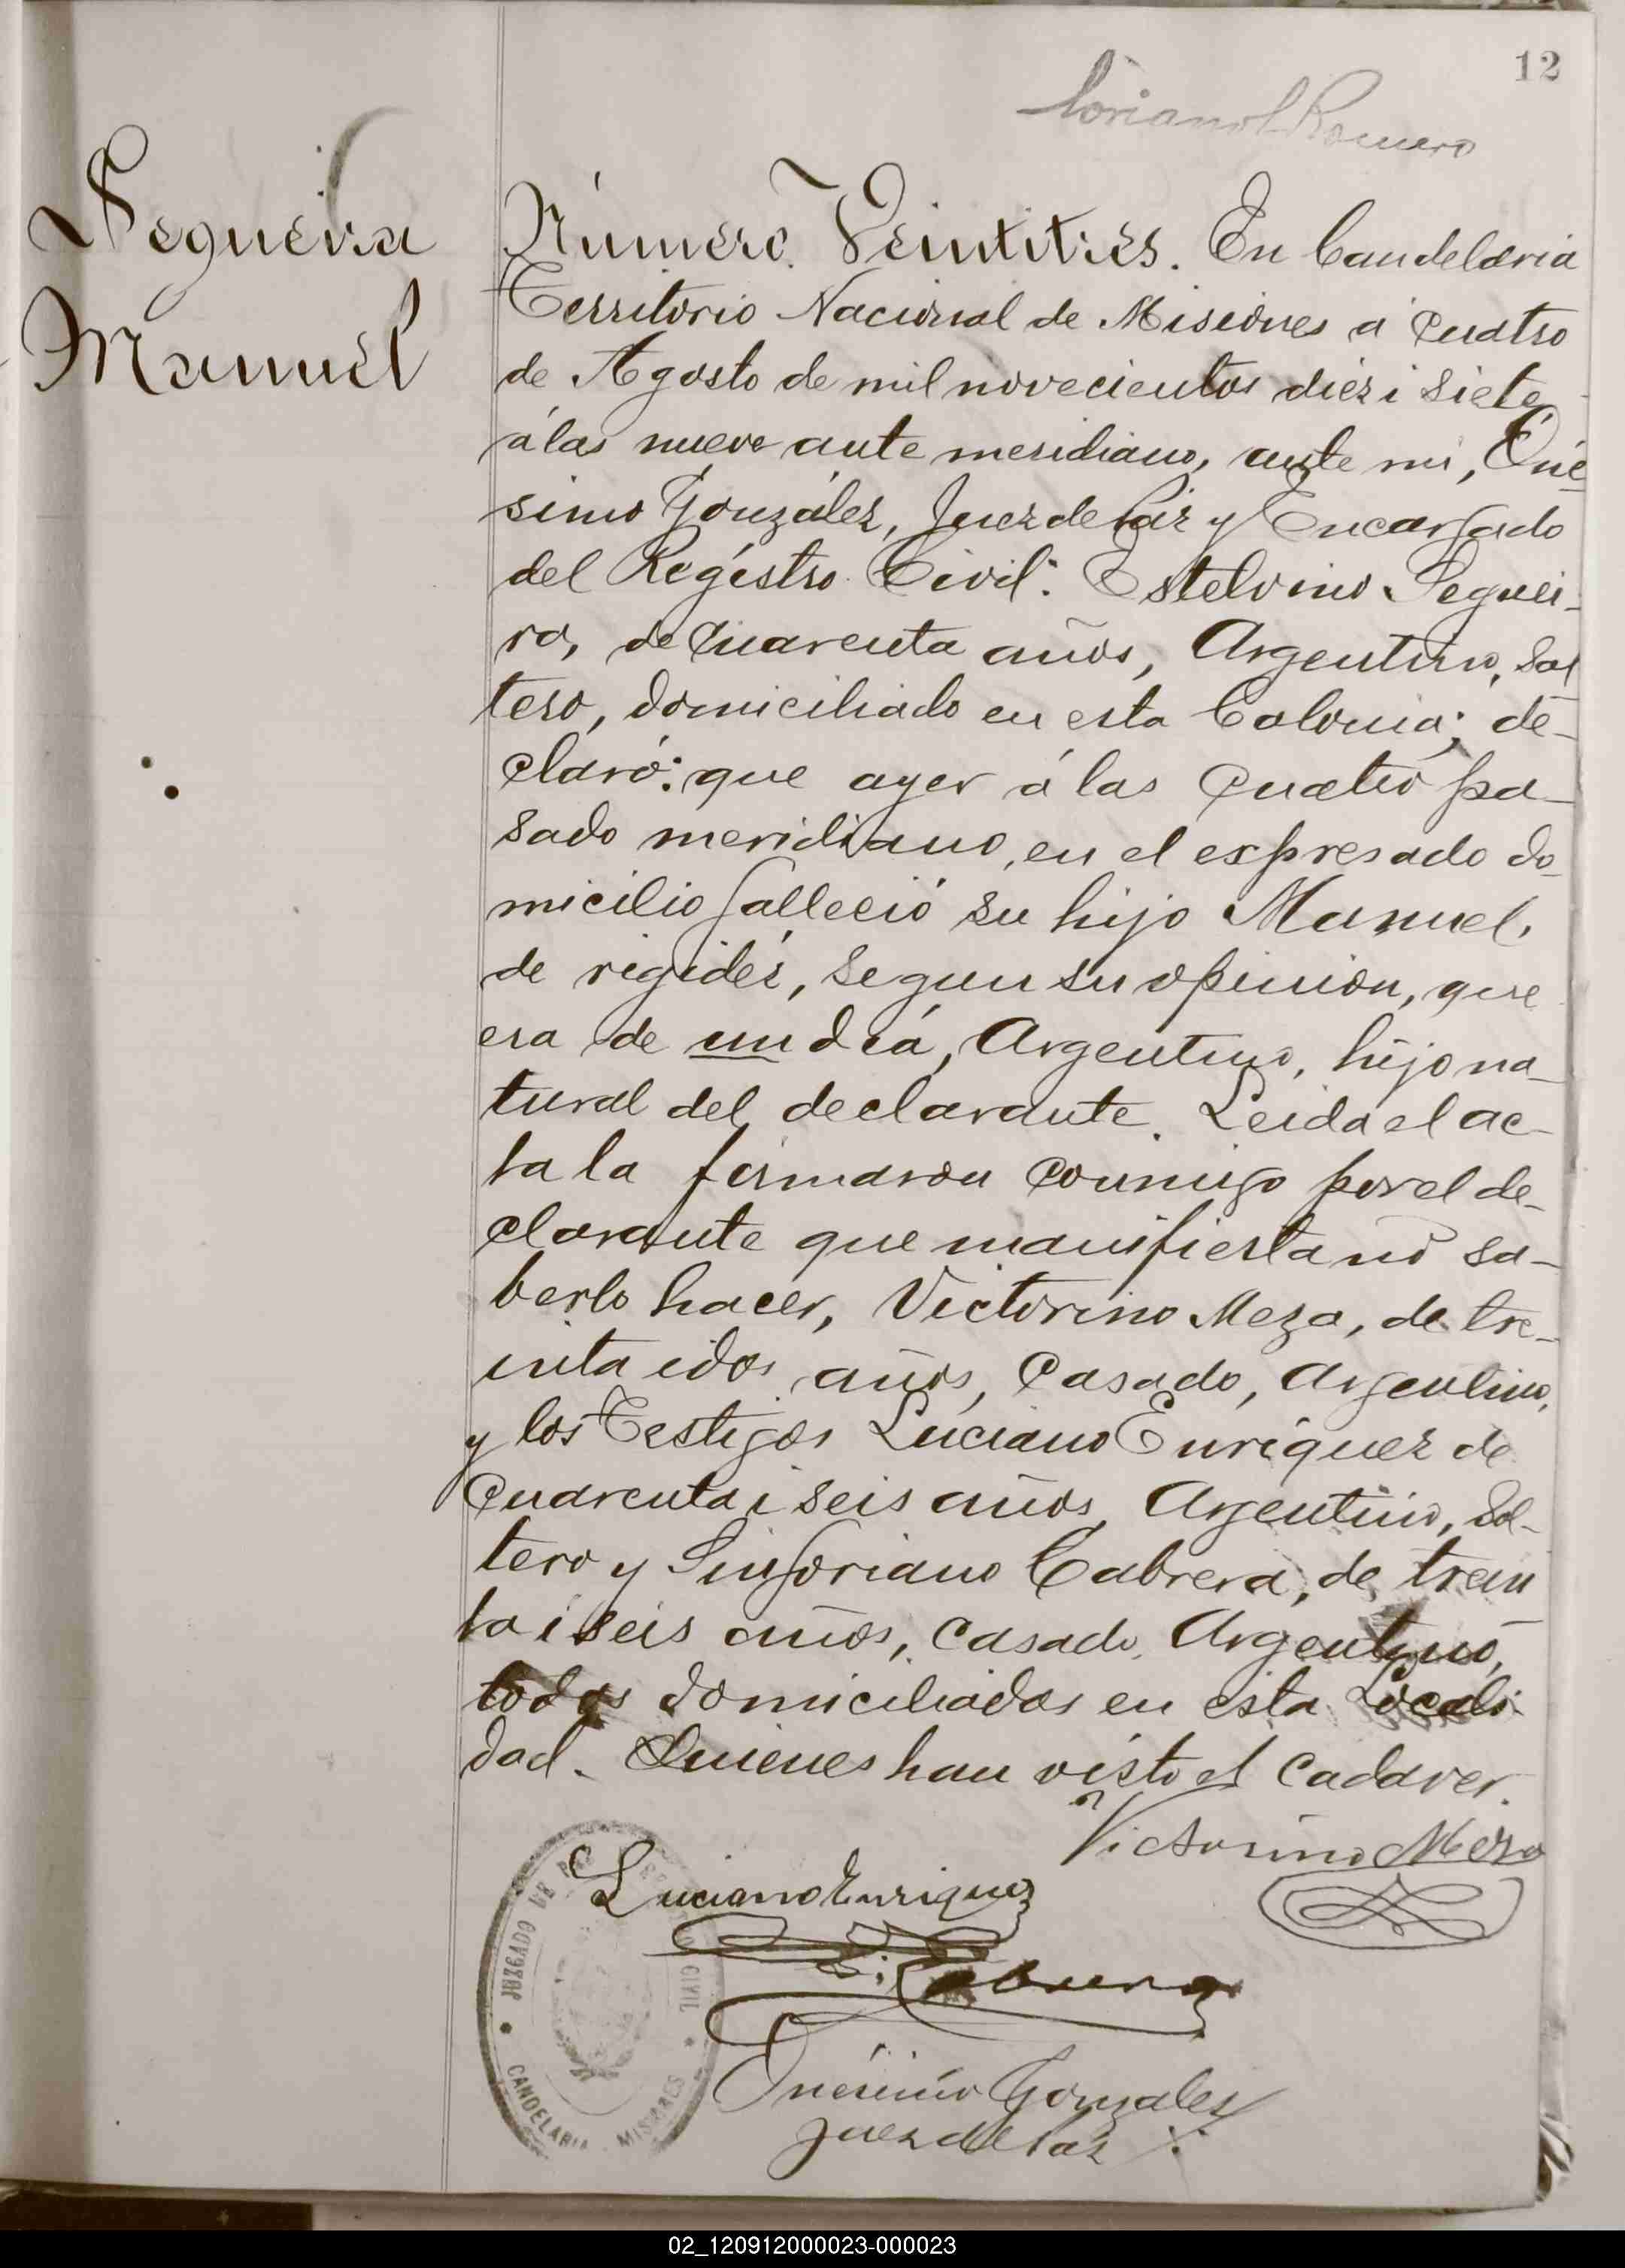 12
Romero
Segueira
Manuel
Número Veintitres. En Candelaria
Territorio Nacional de Misiones á cuatro
de Agosto de mil novecientos diez i siete
á las nueve ante meridiano, ante mi, Oné-
simo González, Juez de Páz y Encargado
del Registro Civil: Estelvino Seguei-
ra, de cuarenta años, Argentino, sol
tero, domiciliado en esta Colonia; de-
claró: que ayer á las cuatro pa-
sado meridiano, en el expresado do-
micilio falleció su hijo Manuel,
de rigidéz, segun su opinion, que
era de un día, Argentino, hijo na-
tural del declarante. Leida el ac-
ta la firmaron conmigo por el de-
clarante que manifiesta nó sa-
berlo hacer, Victorino Meza, de tre-
inta idos años, Casado, Argentino,
y los Testigos Luciano Enriquez de
cuarenta i seis años, Argentino, Sol-
tero y Sinforiano Cabrera, de trein
ta i seis años, casado, Argentino,
todos domiciliados en esta Locali-
dad. Quienes han visto el cadaver.
Victorino Meza
Luciano Enriquez
S. Cabrera
Onésimo Gonzalez
Juez de Paz
JUZGADO DE PAZ
CIVIL
CANDELARIA
MISIONES
02_120912000023-000023